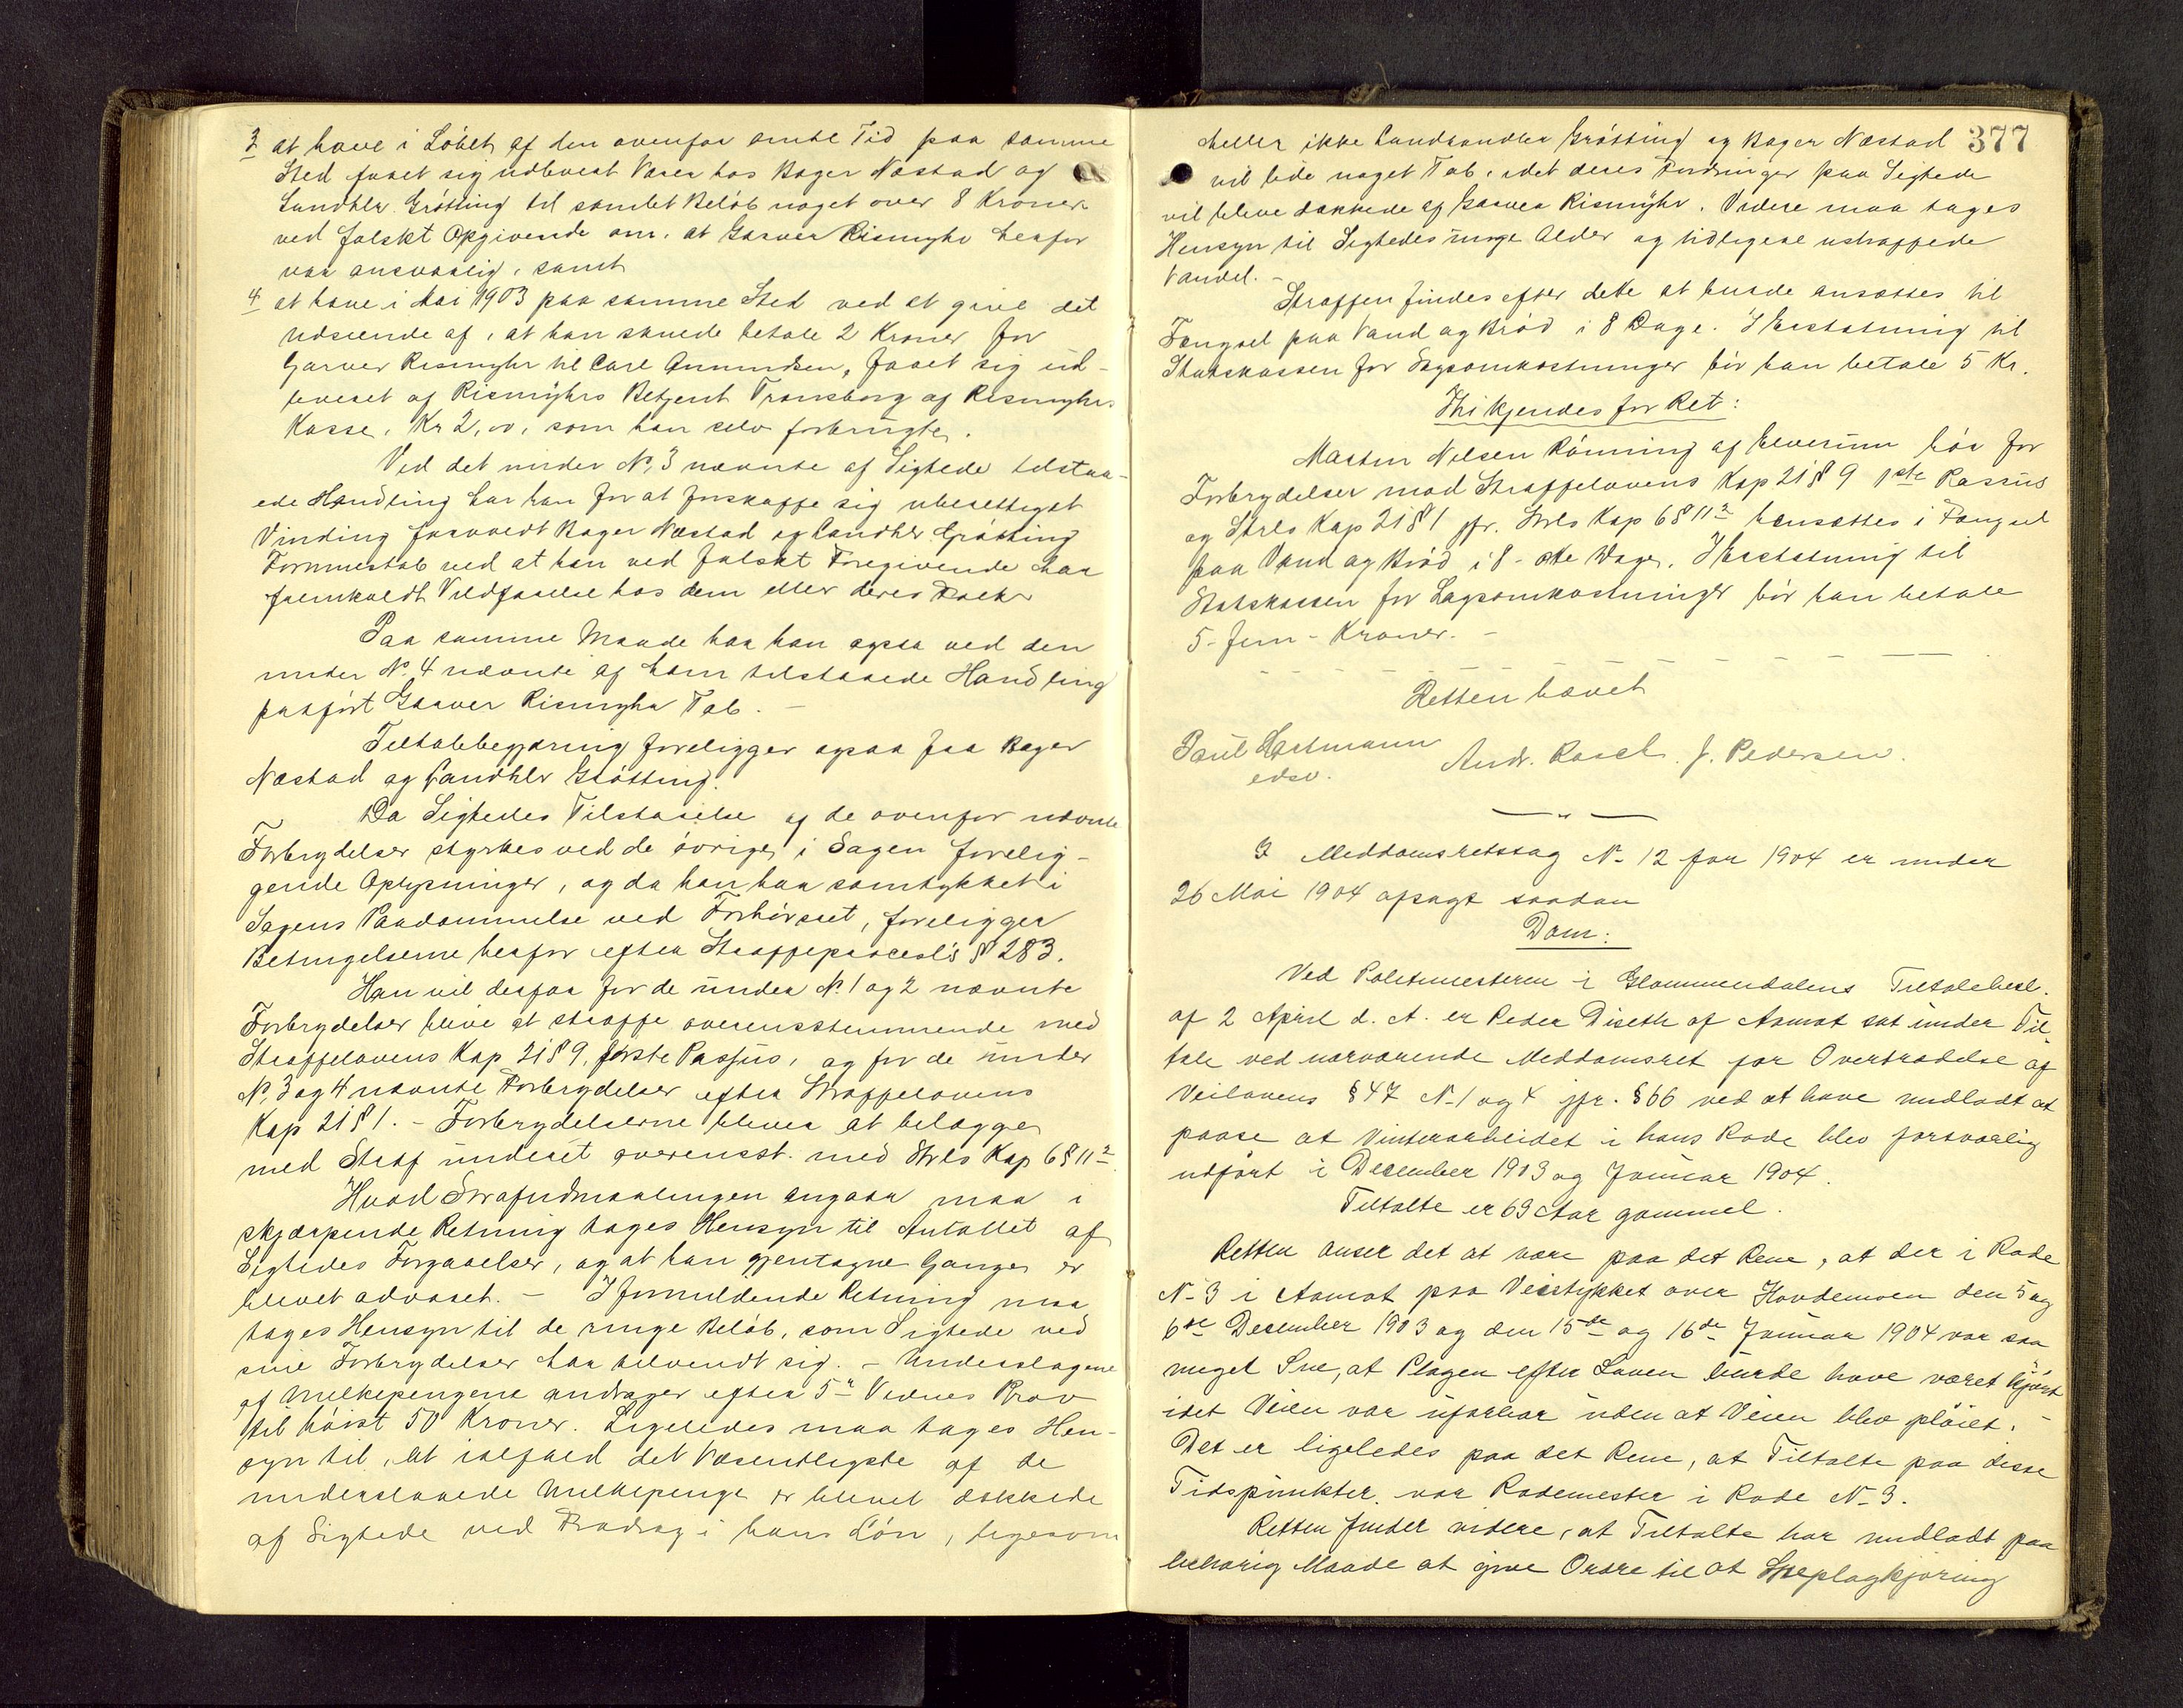 3 at have i Løbet af den ovenfor omtlte Tid paa samme
Sted faaet sig udleveret Varer hos Bager Næstad og
Landhlr. Grøtting til samlet Beløb noget over 8 Kroner
ved falskt Opgivende om, at Garver Rismyhr herfor
var ansvarlig, samt
4 at have i Mai 1903 paa samme Sted ved at give det
Udseende af, at han skulde betale 2 Kroner for
Garver Rismyhr til Carl Amundsen, faaet sig ud-
leveret af Rismyhrs Betjent Transborg af Rismyhrs
Kasse, Kr 2,00, som han selv forbrugte.
Ved det under No. 3 nævnte af Sigtede tilstaa-
ede Handling har han for at forskaffe sig uberettiget
Vinding forvoldt Bager Næstad og Landhlr. Grøtting
Formuestab ved at han ved falskt Foregivende har
fremkaldt Vildfarelse hos dem eller deres Folk.
Paa samme Maade har han ogsaa ved den
under No. 4 nævnte af ham tilstaaede Handling
paaført Garver Rismyhr Tab. –
Tiltalebegjæring foreligger ogsaa fra Bager
Næstad og Landhlr Grøtting.
Da Sigtedes Tilstaaelse af de ovenfor nævnte
Forbrydelser styrkes ved de øvrige i Sagen forelig-
gende Oplysninger, og da han har samtykket i
Sagens Paadømmelse ved Forhørsret, foreligger
Betingelserne herfor efter Straffeproceslvs § 283.
Han vil derfor for de under No. 1 og 2 nævnte
Forbrydelser blive at straffe overensstemmende med
Straffelovens Kap 21 § 9, første Passus, og for de under
No. 3 og 4 nævnte Forbrydelser efter Straffelovens
Kap 21 § 1. – Forbrydelserne bliver at belægge
med Straf underet overensst. med Strls Kap 6 § 11 2.
Hvad Strafudmaalingen angaar maa i
skjærpende Retning tages Hensyn til Antallet af
Sigtedes Forgaaelser, og at han gjentagne Gange er
blevet advaret. – I formildende Retning maa
tages Hensyn til de ringe Beløb, som Sigtede ved
sine Forbrydelser har tilvendt sig. – Underslagene
af Melkepengene andrager efter 5te Vidnes Prov
til høist 50 Kroner. Ligeledes maa tages Hen-
syn til, at ialfald det Væsentligste af de
underslaaede Melkepenge er blevet dækkede
af Sigtede ved Fradrag i hans Løn, ligesom
377
heller ikke Landhandler Grøtting og Bager Næstad
vil lide noget Tab, idet deres Fordringer paa Sigtede
vil blive dækkede af Garver Rismyhr. Videre maa tages
Hensyn til Sigtedes unge Alder og tidligere ustraffede
Vandel. –
Straffen findes efter dette at burde ansættes til
Fængsel paa Vand og Brød i 8 Dage. I Erstatning til
Statskassen for Sagsomkostninger bør han betale 5 Kr.
Thi kjendes for Ret:
Martin Nilsen Rønning af Elverum bør for
Forbrydelser mod Straffelovens Kap 21 § 9 1ste Passus
og Strls Kap 21 § 1 jfr. Strls Kap 6 § 11 2 hensættes i Fængsel
paa Vand og Brød i 8 - otte Dage. I Erstatning til
Statskassen for Sagsomkostninger bør han betale
5 - fem - Kroner. –
Retten hævet
Paul Hartmann
edsv.
Andr. Rasch. J. Pedersen.
I Meddomsretssag No 12 for 1904 er under
26 Mai 1904 afsagt saadan
Dom:
Ved Politimesteren i Glommendalens Tiltalebesl.
af 2 April d. A. er Peder Diseth af Aamot sat under Til-
tale ved nærværende Meddomsret for Overtrædelse af
Veilovens § 47 No 1 og 4 jfr. § 66 ved at have undladt at
paase at Vinterarbeidet i hans Rode blev forsvarlig
udført i December 1903 og Januar 1904.
Tiltalte er 69 Aar gammel.
Retten anser det at være paa det Rene, at der i Rode
No 3 i Aamot paa Veistykket over Hovdemoen den 5 og
6te December 1903 og den 15de og 16de Januar 1904 var saa
meget Sne, at Plogen efter Loven burde have været kjørt
idet Veien var ufarbar uden at Veien blev pløiet. –
Det er ligeledes paa det Rene, at Tiltalte paa disse
Tidspunkter var Rodemester i Rode No 3.
Retten finder videre, at Tiltalte har undladt paa
behørig Maade at give Ordre til at Sneplogkjøring